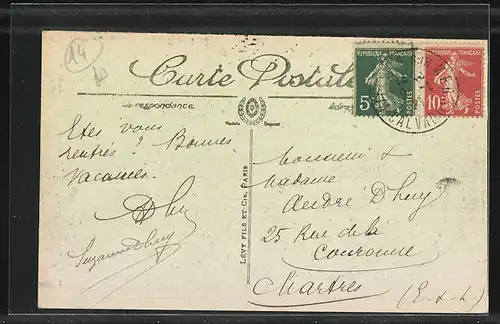 14
Carte Postale
Correspondance
Adre
RÉPUBLIQUE FRANÇAISE
5
POSTES
RÉPUBLIQUE FRANÇAISE
10
POSTES
CALVA
Etes vous
rentrés ? Bonnes
vacances.
Suzanne Dhuy
LÉVY FILS ET CIE, PARIS
Monsieur &
Madame
André Dhuy
25 Rue de la
Couronne
Chartres
(E-&-L)